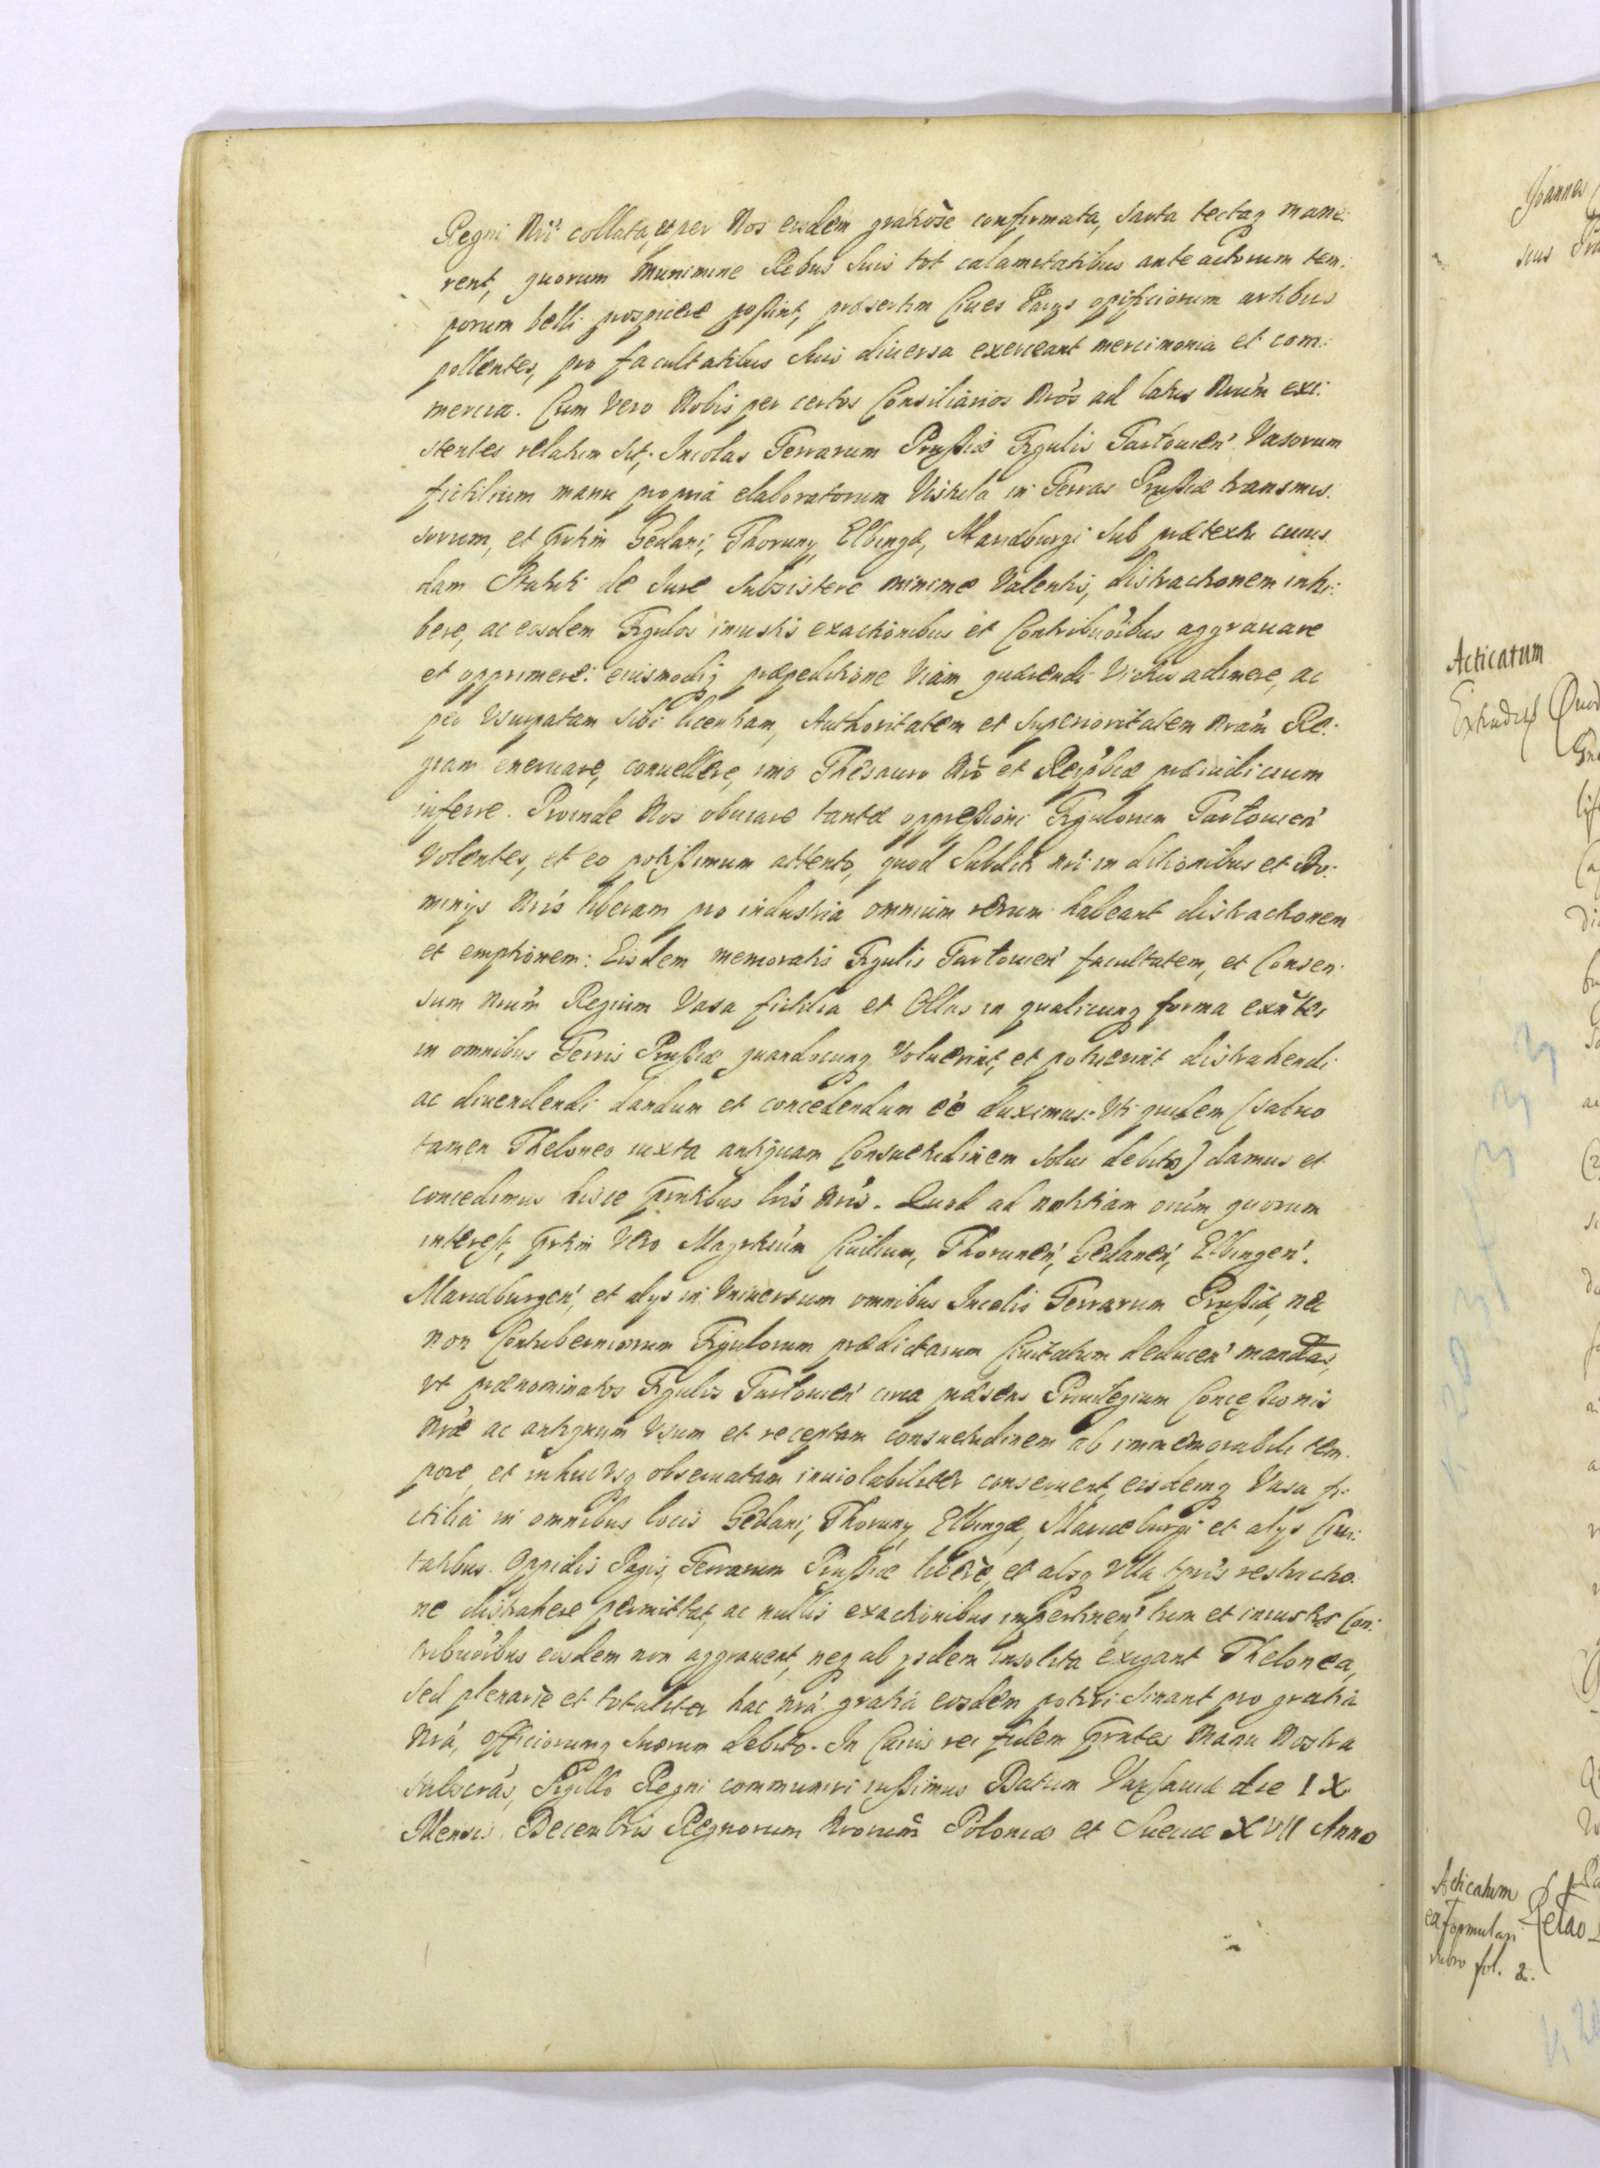 Regni Nri collata, et per Nos eisdem gratiose confirmata, Sarta tectaq mane:
rent, quorum Munimine Rebus Suis tot calamitatibus ante actorum tem:
porum belli prospicere possint, præsertim Ciues varys opificiorum artibus
pollentes, pro facultatibus Suis diuersa exerceant mercimonia et com:
mercia. Cum vero Nobis per certos Consiliarios Nros ad latus Nrum exi:
stentes relatum sit, Incolas Terrarum Prussiæ Figulis Tartouien Vasorum
fictilium manu propria elaboratorum Vistula in Terras Prussiæ transmis:
sorum, et Prtim Gedani, Thoruny, Elbingæ, Mariæburgi Sub prætextu cuius
dam Statuti de Iure Subsistere minime Valentis, distractionem inhi:
bere, ac eosdem Figulos iniustis exactionibus et Contribuoibus aggrauare
et opprimere: eiusmodiq præpeditione Viam quærendi Victus adimere, ac
per Vsurpatam sibi licentiam, Authoritatem et Superioritatem Nram Re:
giam eneruare, conuellere, imo Thesauro Nro et Reipbcæ præiudicium
inferre. Proinde Nos obuiare tantæ oppressioni Figulorum Tartouien
Volentes, et eo potissimum attento, quod Subditi nri in ditionibus et Do:
minys Nris liberam pro industria omnium rerum habeant distractionem
et emptionem: Eisdem memoratis Figulis Tartouien facultatem, et Consen:
sum Nrum Regium Vasa fictilia et Ollas in qualicunq forma exntes
in omnibus Terris Prussiæ quandocunq Voluerint, et potuerint distrahendi
ac diuendendi dandum et concedendum eē duximus: Vti quidem (saluo
tamen Theloneo iuxta antiquam Consuetudinem Solui debito) damus et
concedimus hisce Prntibus lris Nris. Quod ad notitiam oium quorum
interest, Prtim Vero Magrtuum Ciuitum, Thorunen, Gedanen, Elbingen.
Mariæburgen, et alys in Vniuersum omnibus Incolis Terrarum Prussiæ, nec
non Contuberniorum Figulorum prædictarum Ciuitatum deducen mandtas,
vt prænominatos Figulis Tartouien circa præsens Priuilegium Concessionis
Nræ ac antiquum Vsum et receptam consuetudinem ab immemorabili tem:
pore, et in hucusq obseruatam inuiolabiliter conseruent, eisdemq Vasa fi:
ctilia in omnibus locis Gedani, Thoruny, Elbingæ, Mariæburgi et alys Ciui:
tatibus Oppidis Pagis, Terrarum Prussiæ libere, et absq Vlla tpris restrictio:
ne distrahere permittat, ac nullis exactionibus impertinen tum et iniustis Con:
tribuoibus eosdem non aggrauent, neq ab ysdem insolita exigant Thelonea,
sed plenarie et totaliter hac nra gratia eosdem potiri sinant pro gratia
Nra, officiorumq Suorum debito. In Cuius rei fidem Prntes Manu Nostra
subscras, Sigillo Regni communiri iussimus Datum Varsauiæ die IX
Mensis Decembris Regnorum Nrorum Poloniæ et Sueciæ XVII Anno
Joannes
Acticatum
Extraditus
Acticatum
ex Formulari
rubro fol. 2.